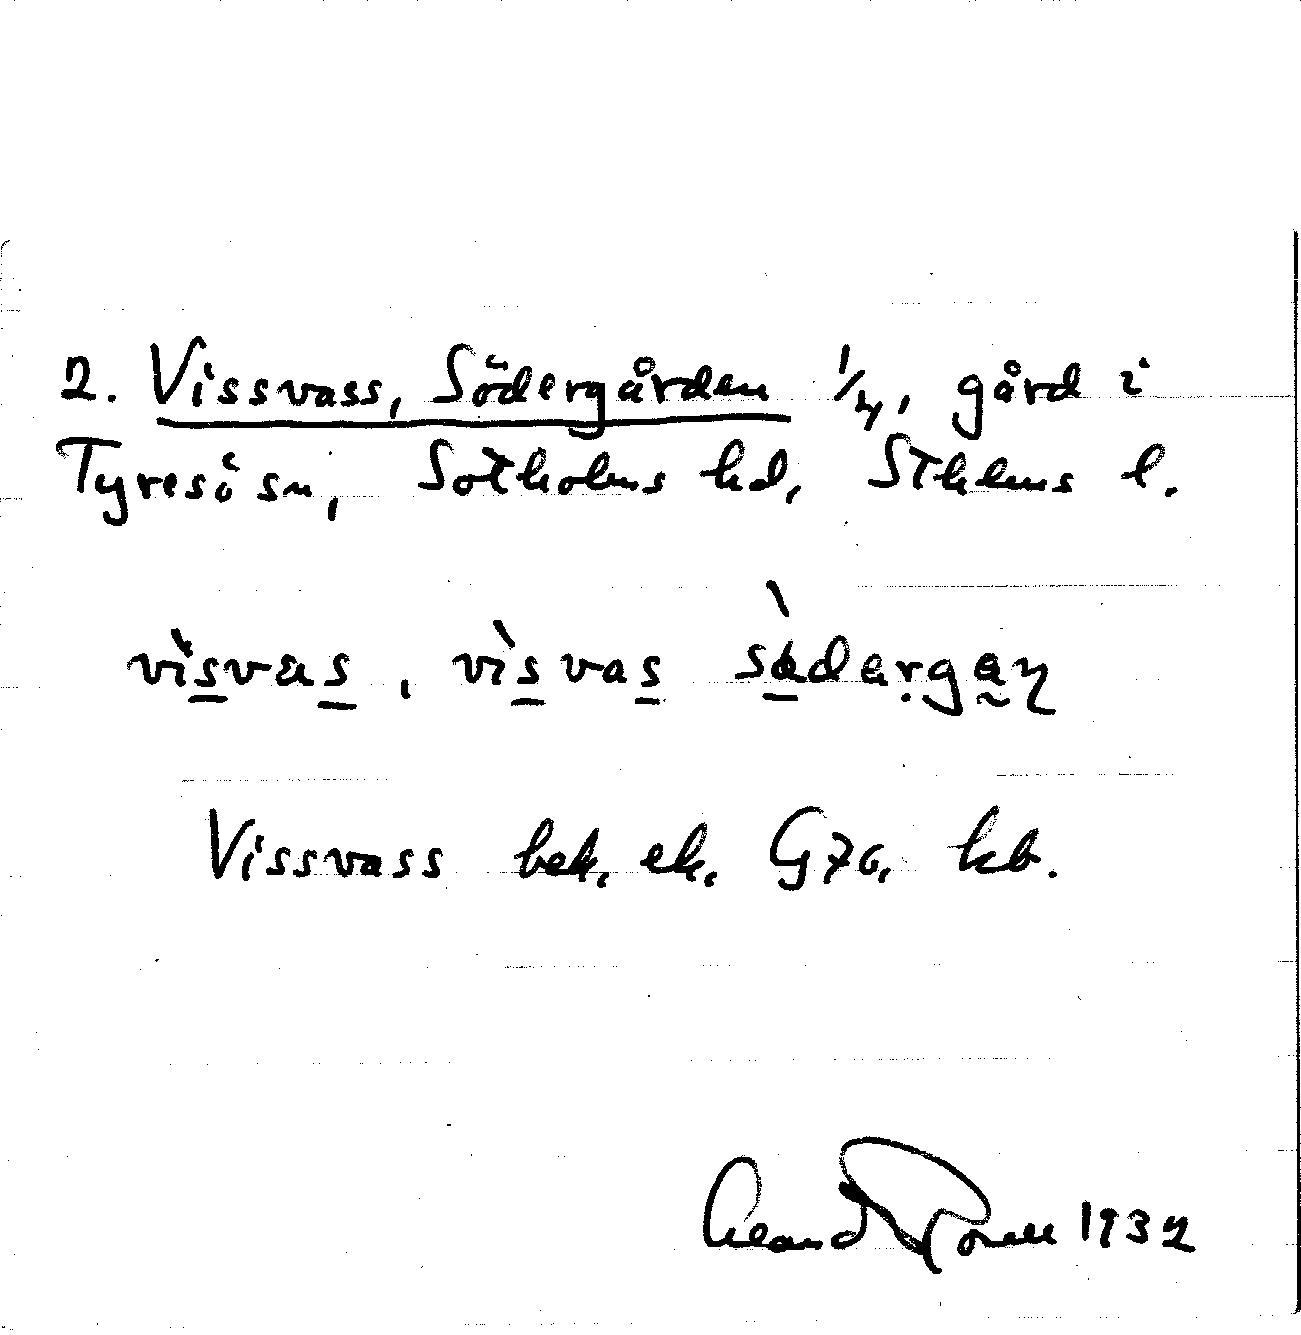 2. Vissvass, Södergården 1/4, gård i
Tyresö sn, Sotholms hd, Sthlms l.
vìsvas, vìsvas
Vissvass bek. ek. G70, kb.
1932